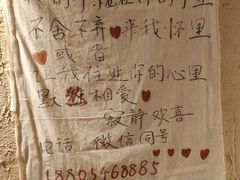 不舍不弃来我怀里
或者
让我住进你的心里
默然相爱
寂静欢喜
电话 微信同号
18805468885